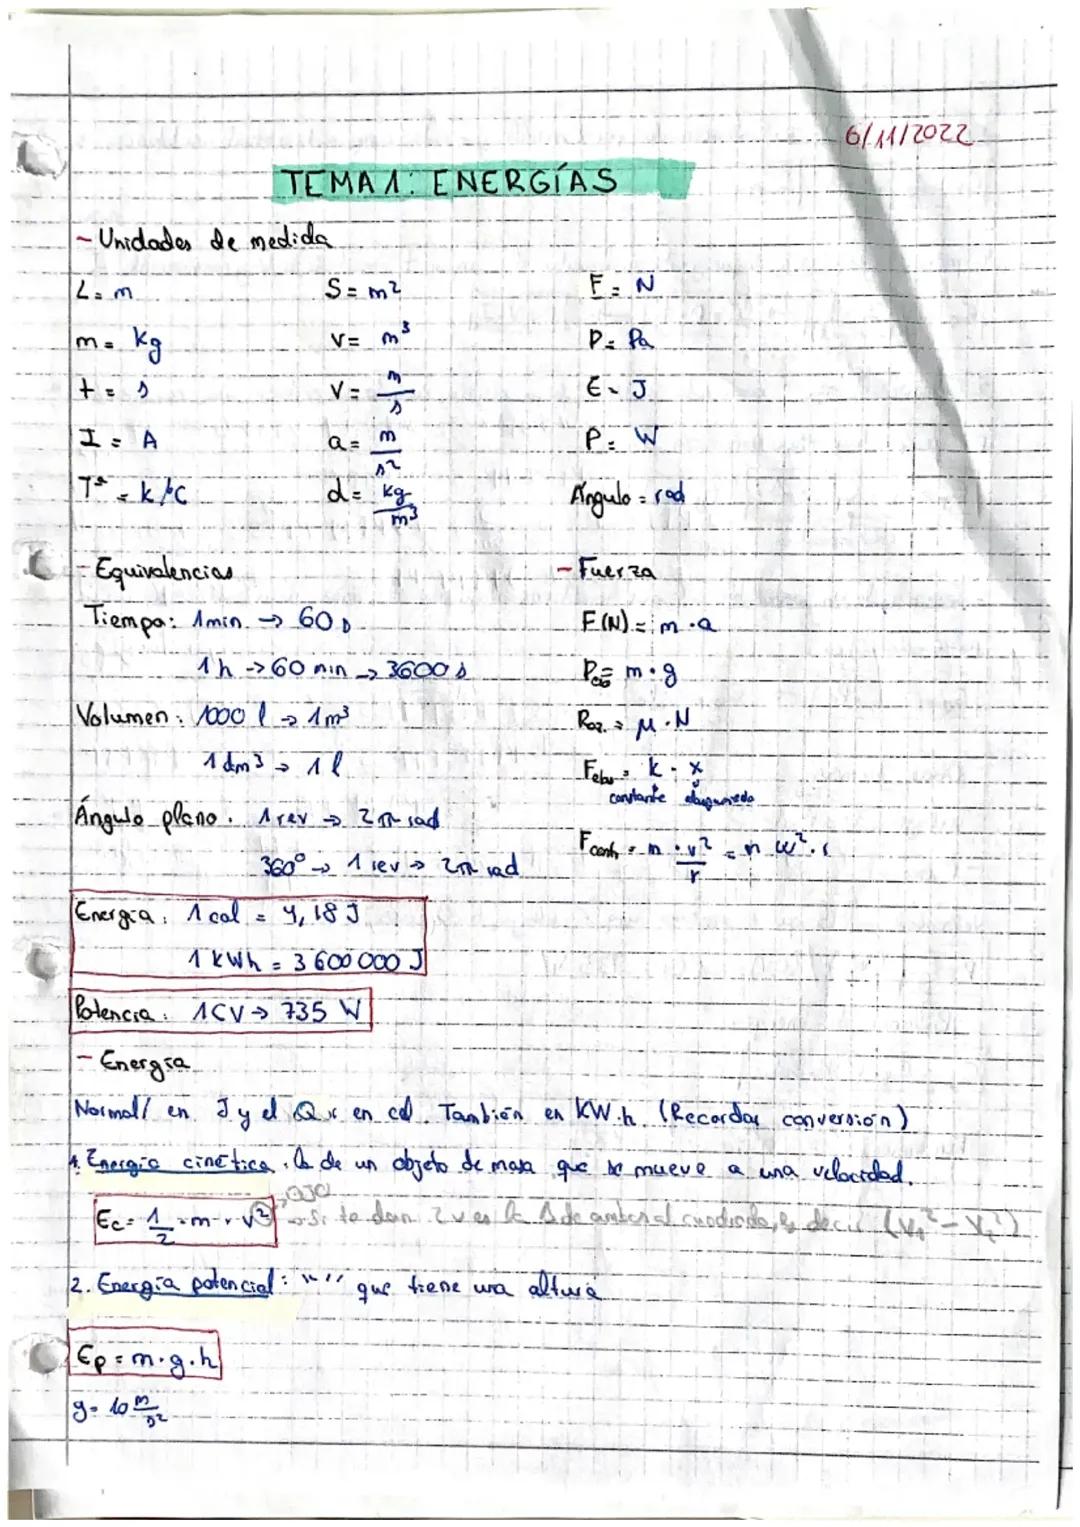 6/11/2022
TEMA 1: ENERGÍAS
- Unidades de medida
L = m   S = m²   F = N
m = Kg   V = m³   P = Pa
t = s   V = m/s   E = J
I = A   a = m/s²   P = W
Tª = K/ºC   d = kg/m³   Ángulo = rad
- Equivalencias
Tiempo: 1 min → 60 s
1 h → 60 min → 3600 s
Volumen: 1000 l → 1 m³
1 dm³ → 1 l
Ángulo plano: 1 rev → 2π rad
360º → 1 rev → 2π rad
Energía: 1 cal = 4,18 J
1 kWh = 3 600 000 J
Potencia: 1 CV → 735 W
- Fuerza
F(N) = m · a
P = m · g
Roz. = μ · N
Felas = k · x
constante
Fcent = m · v²/r = m w² · r
- Energía
Normal/ en J y el Q en cal. También en KW·h (Recordar conversión)
1. Energía cinética: la de un objeto de masa que se mueve a una velocidad.
OJO
Ec = 1/2 · m · v² → Si te dan 2 v es la Δ de ambas al cuadrado, es decir (V₁² - V₂²)
2. Energía potencial: " " que tiene una altura
Ep = m · g · h
g = 10 m/s²